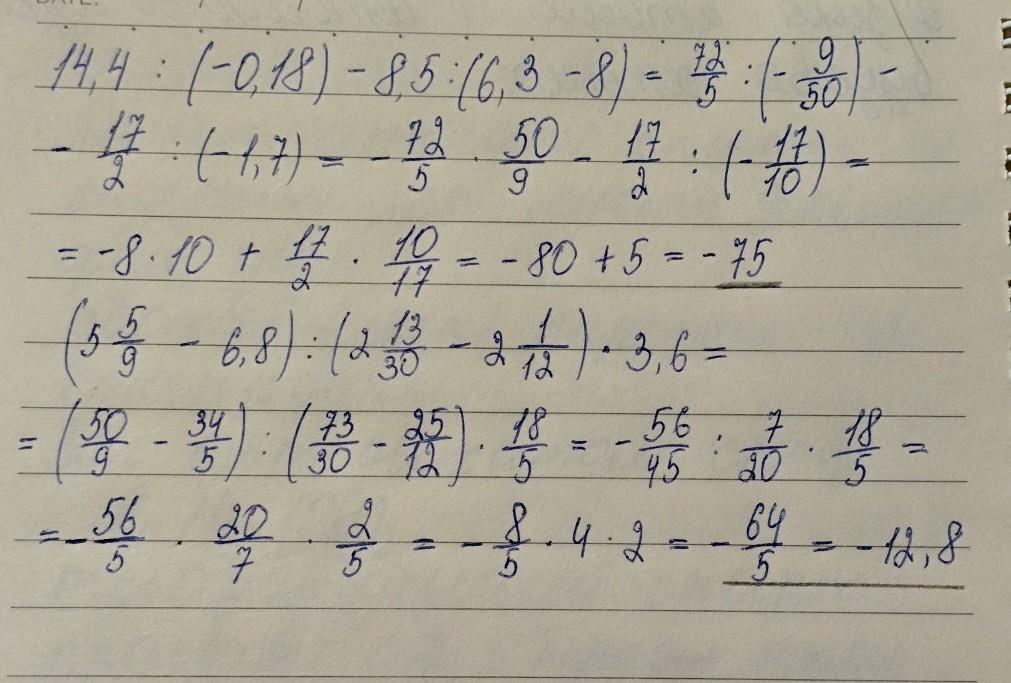 DATE:
14,4 : (-0,18) - 8,5 : (6,3 - 8) = 72/5 : (-9/50) -
- 17/2 : (-1,7) = -72/5 · 50/9 - 17/2 : (-17/10) =
= -8 · 10 + 17/2 · 10/17 = -80 + 5 = -75
(5 5/9 - 6,8) : (2 13/30 - 2 1/12) · 3,6 =
= (50/9 - 34/5) : (73/30 - 25/12) · 18/5 = -56/45 : 7/20 · 18/5 =
= -56/5 · 20/7 · 2/5 = -8/5 · 4 · 2 = -64/5 = -12,8